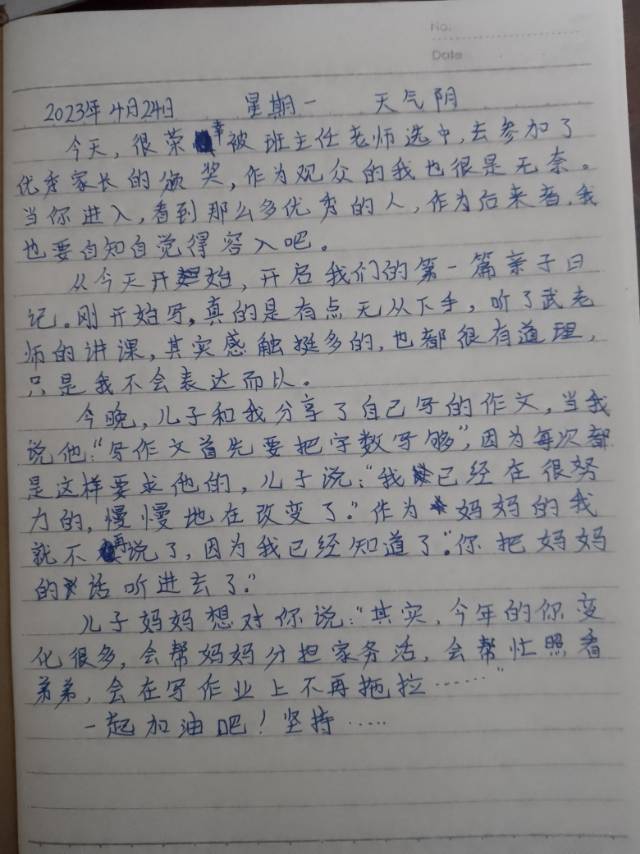 No:
Date
2023年4月24日 星期一 天气阴
今天，很荣幸被班主任老师选中，去参加了
优秀家长的颁奖，作为观众的我也很是无奈。
当你进入，看到那么多优秀的人，作为后来者，我
也要自知自觉得容入吧。
从今天开始，开启我们的第一篇亲子日
记。刚开始写，真的是有点无从下手，听了武老
师的讲课，其实感触挺多的，也都很有道理，
只是我不会表达而以。
今晚，儿子和我分享了自己写的作文，当我
说他："写作文首先要把字数写够"，因为每次都
是这样要求他的，儿子说："我已经在很努
力的，慢慢地在改变了。"作为妈妈的我
就不再说了，因为我已经知道了"你把妈妈
的话听进去了。"
儿子妈妈想对你说："其实，今年的你变
化很多，会帮妈妈分担家务活，会帮忙照看
弟弟，会在写作业上不再拖拉……"
一起加油吧！坚持……